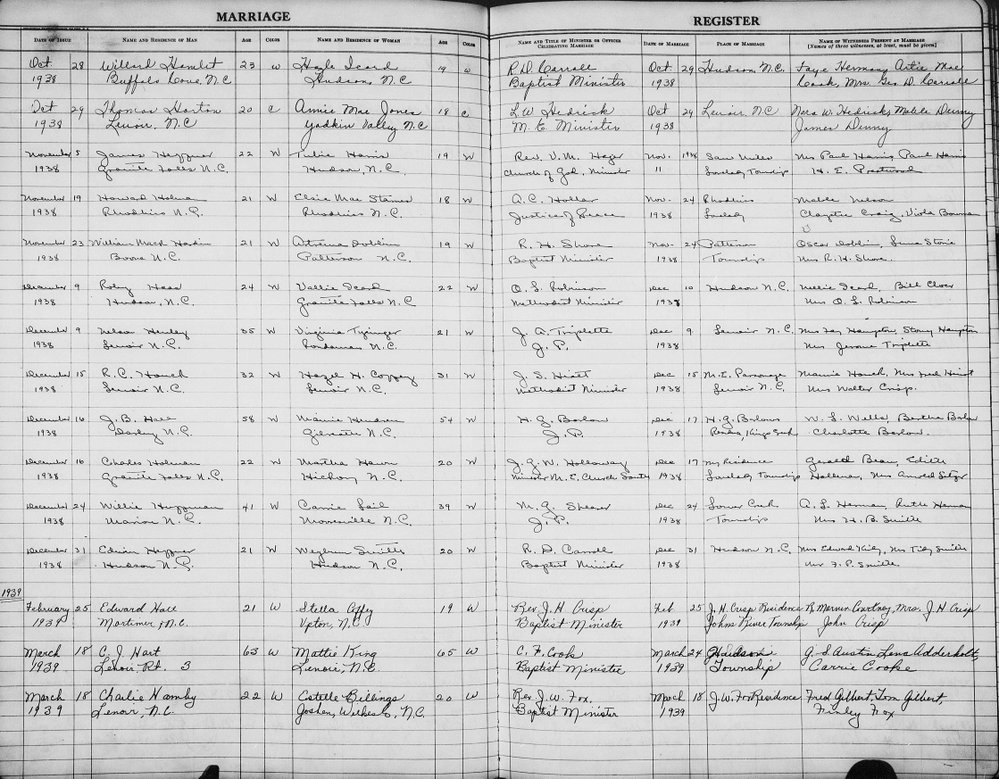 MARRIAGE REGISTER
DATE OF ISSUE NAME AND RESIDENCE OF MAN AGE COLOR NAME AND RESIDENCE OF WOMAN AGE COLOR NAME AND TITLE OF MINISTER OR OFFICER CELEBRATING MARRIAGE DATE OF MARRIAGE PLACE OF MARRIAGE NAME OF WITNESSES PRESENT AT MARRIAGE [Names of three witnesses, at least, must be given]
Oct 28 Willard Hamlet 23 W Hazle Icard 19 W R.D. Carroll Oct 29 Hudson N.C. Faye Herman, Artie Mae
1938 Buffalo Cove, N.C. Hudson, N.C. Baptist Minister 1938 Cook, Mrs Geo D. Carroll
Oct 29 Thomas Horton 20 C Annie Mae Jones 18 C L.W. Hedrick Oct 29 Lenoir, N.C Mrs W. Hedrick, Mable Denny
1938 Lenoir, N.C Yadkin Valley N.C M.E. Minister 1938 James Denny
November 5 James 22 W Harris 19 W Rev. V.M. Hager Nov. 1938 Saw Mills Mrs Paul Harris, Paul Harris
1938 Granite Falls N.C. Hudson, N.C. Church of God, Minister 11 Lovelady Township H.E.
November 19 Howard Holman 21 W Elsie Mae Starnes 18 W A.C. Hollar Nov. 24 Rhodhiss Mable Nelson
1938 Rhodhiss N.C. Rhodhiss N.C. Justice of Peace 1938 Lovelady Craig, Viola Bowman
November 23 William Mack Hardin 21 W 19 W R.H. Shore Nov. 24 Patterson Oscar
1938 Boone N.C. Patterson N.C. Baptist Minister 1938 Township Mrs R.H. Shore.
December 9 Roby Hass 24 W Vallie Icard 22 W O.L. Robinson Dec 10 Hudson N.C. Nellie Icard, Bill
1938 Hudson, N.C. Granite Falls N.C. Methodist Minister 1938 Mrs O.L. Robinson
December 9 Nelson Henley 35 W Virginia 21 W J.A. Triplette Dec 9 Lenoir N.C. Mrs Hampton, Hampton
1938 Lenoir N.C. N.C. J.P. 1938 Mrs Jerome Triplette
December 15 R.C. Houck 32 W Hazel H. Coffey 31 W J.S. Hiatt Dec 15 M.E. Parsonage Mamie Houck, Mrs Hiatt
1938 Lenoir N.C. Lenoir N.C. Methodist Minister 1938 Lenoir N.C. Mrs Walter Crisp.
December 16 J.B. Hall 58 W Mamie 54 W H.G. Barlow Dec 17 H.G. Barlows W.L. Wells, Bertha Barlow
1938 Darby N.C N.C. J.P. 1938 Kings Creek Charlotte Barlow.
December 16 Charles Holman 22 W Martha Hawn 20 W J.G.W. Holloway Dec 17 my Residence Gerald Bean, Edith
1938 Granite Falls N.C. Hickory N.C. Minister M.E. Church South 1938 Lovelady Township Mrs Arnold
December 24 Willie Huffman 41 W Carrie Sail 39 W M.G. Shearer Dec 24 Lower Creek A.L. Herman,
1938 Marion N.C. Mooresville N.C. J.P. 1938 Township Mrs H.B. Smith
December 31 Edwin 21 W 20 W R.D. Carroll Dec 31 Hudson N.C. Mrs Edward
1938 Hudson N.C. Hudson N.C. Baptist Minister 1938 Mrs F.P. Smith
1939
February 25 Edward Hall 21 W Stella Coffey 19 W Rev J.H Crisp Feb 25 J.H. Crisp Residence R. Mervin Courtney, Mrs. J.H Crisp
1939 Mortimer, N.C. Upton, N.C. Baptist Minister 1939 Johns River Township John Crisp
March 18 C.J. Hart 63 W Mattie King 65 W C.F. Cooke March 24 Hudson G.S Austin Lona Adderholt,
1939 Lenoir Rt. 3 Lenoir, N.C. Baptist Minister 1939 Township Carrie Cooke
March 18 Charlie Hamby 22 W Estelle Billings 20 W Rev J.W. Fox, March 18 J.W. Fox Residence Fred Gilbert, Tom Gilbert,
1939 Lenoir, N.C. Goshen, Wilkes Co, N.C. Baptist Minister 1939 Finley Fox